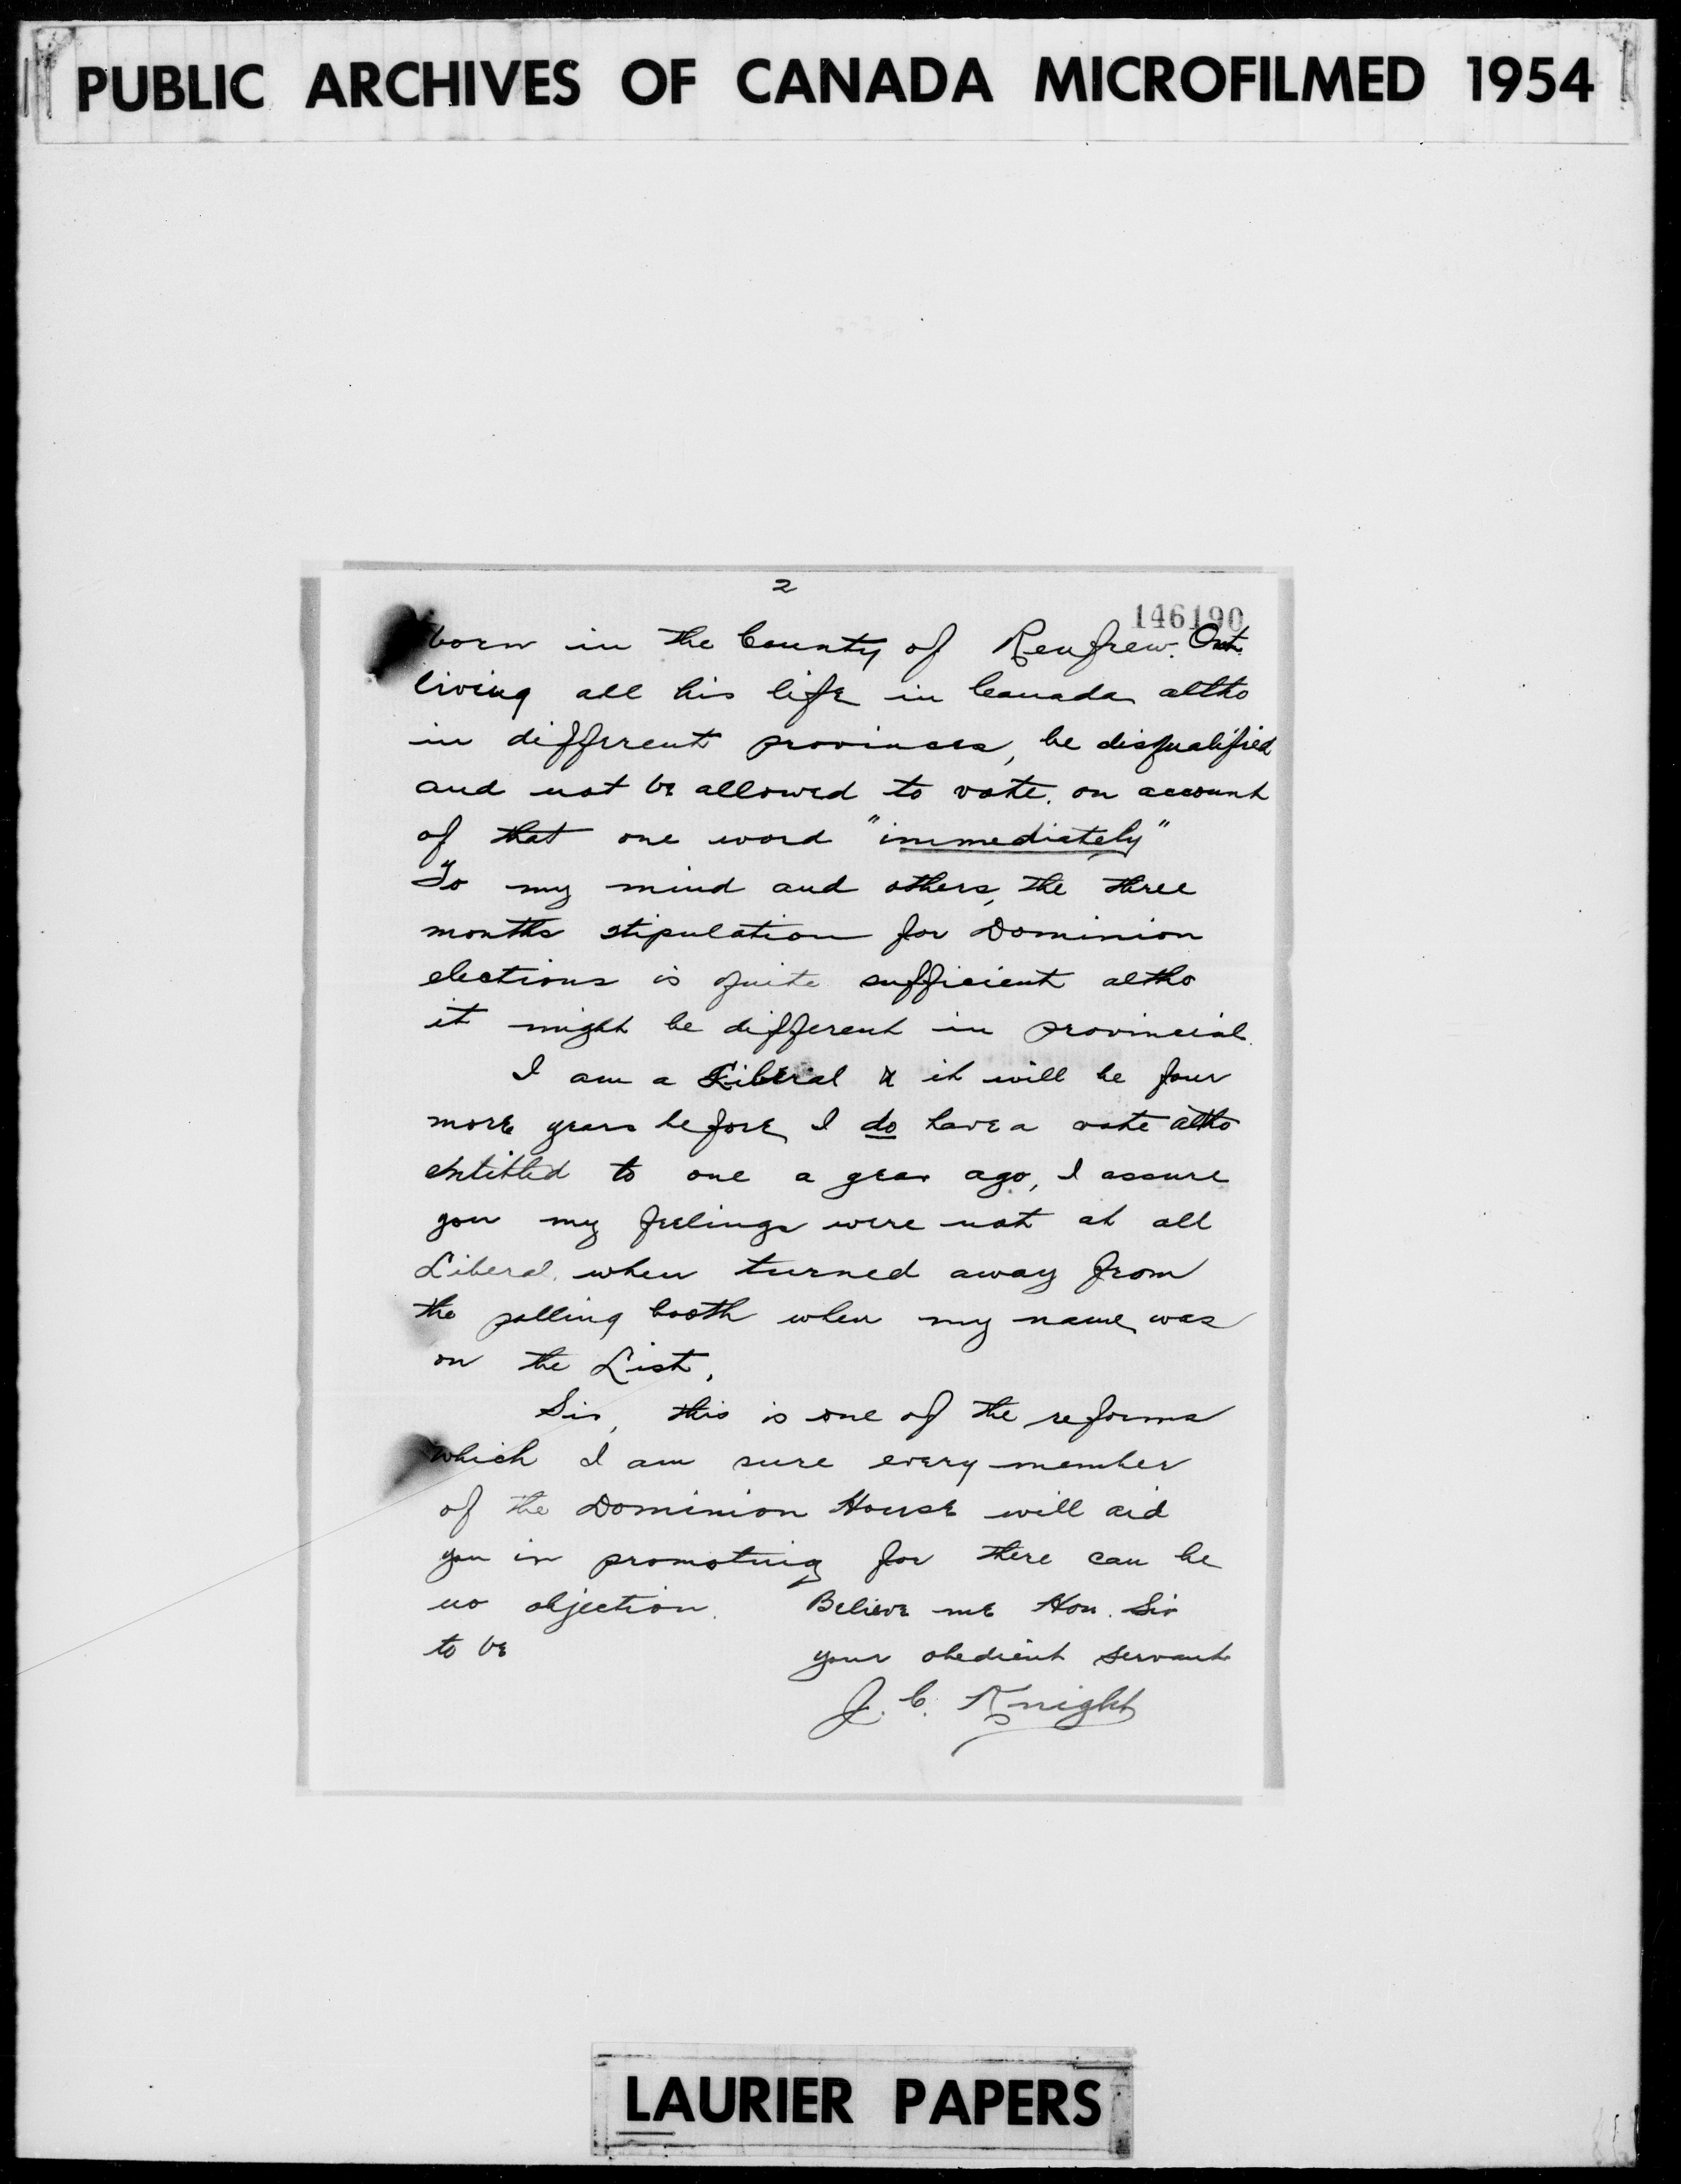 PUBLIC ARCHIVES OF CANADA MICROFILMED 1954
2
146190
born in the County of Renfrew. Ont.
living all his life in Canada altho
in different provinces, be disqualified
and not be allowed to vote. on account
of that one word "immediately"
To my mind and others, the three
months stipulation for Dominion
elections is quite sufficient altho
it might be different in provincial.
I am a Liberal & it will be four
more years before I do have a vote altho
entitled to one a year ago, I assure
you my feelings were not at all
Liberal. when turned away from
the polling booth when my name was
on the List.
Sir, this is one of the reforms
which I am sure every member
of the Dominion House will aid
you in promoting for there can be
no objection. Believe me Hon. Sir
to be your obedient servant
J. C. Knight
LAURIER PAPERS